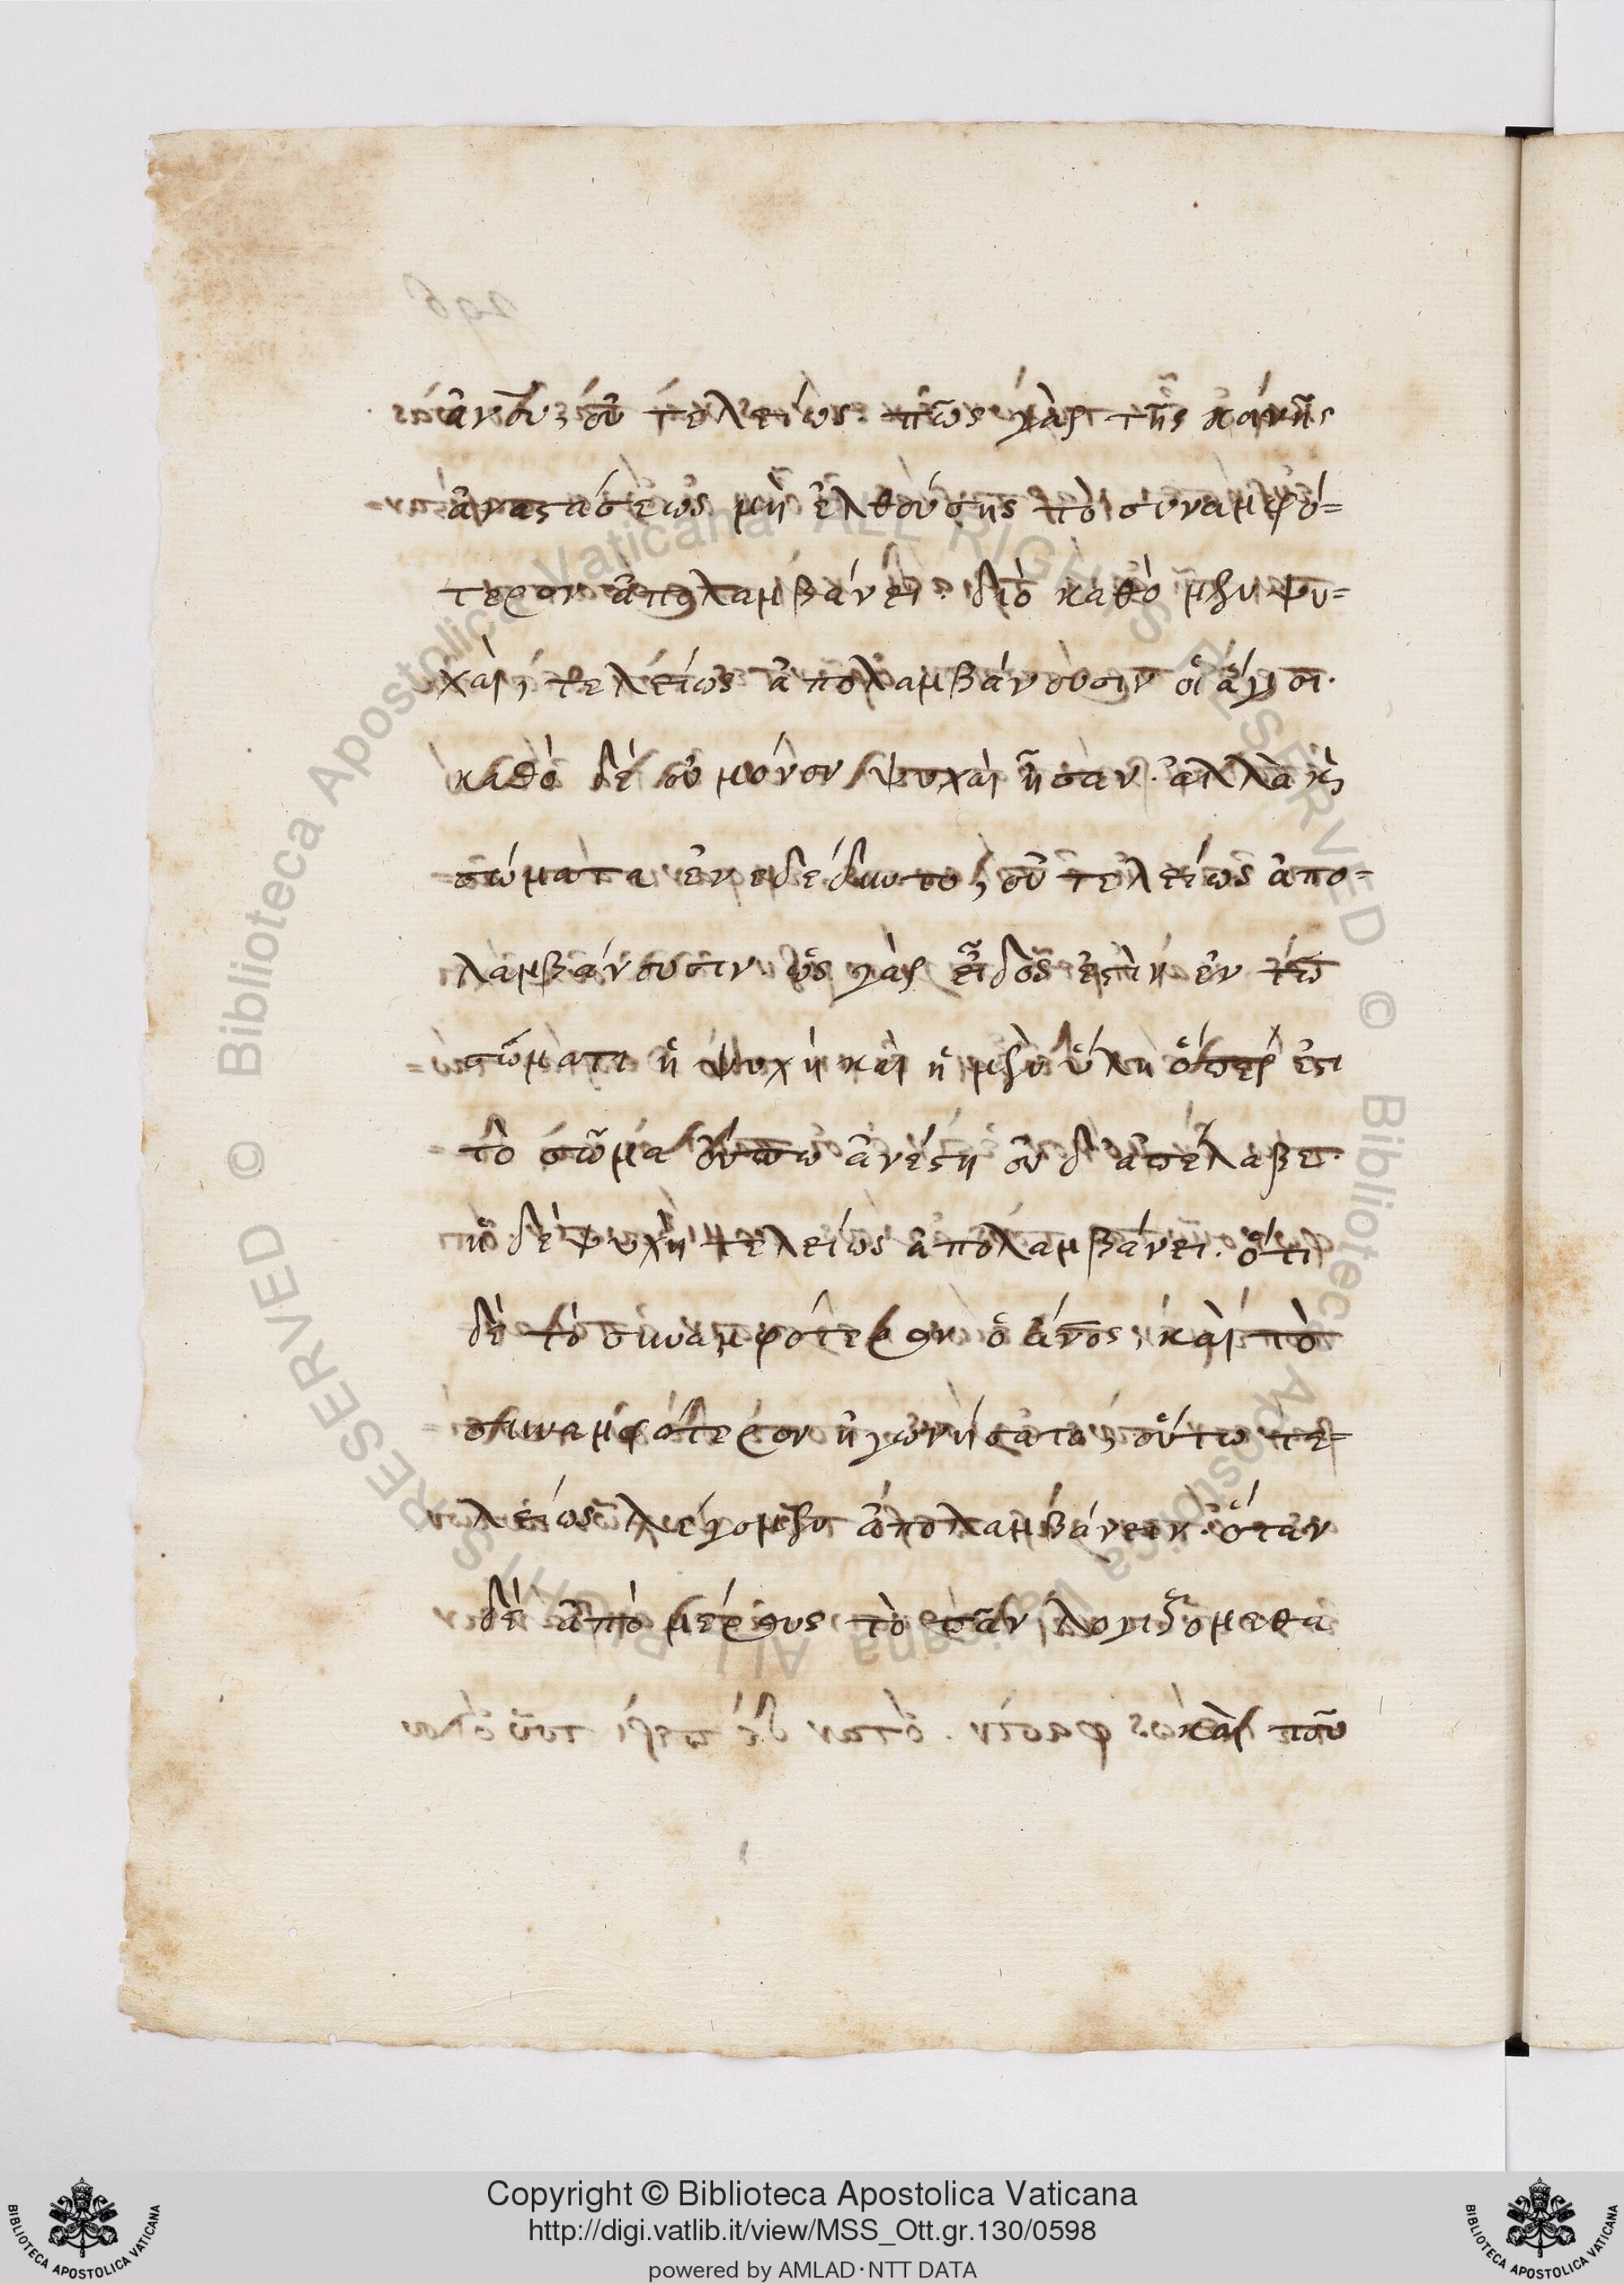 ἀνοῦ, οὐ τελείως. πῶς γὰρ τῆς κοινῆς
ἀναστάσεως μὴ ἐλθούσης τὸ συναμφό=
τερον ἀπολαμβάνει. διὸ καθὸ μὲν ψυ=
χαὶ, τελείως ἀπολαμβάνουσιν οἱ ἅγιοι.
καθὸ δὲ οὐ μόνον ψυχαὶ ἦσαν. ἀλλὰ κ̀
σώματα ἐνεδέδυντο, οὐ τελείως ἀπο=
λαμβάνουσιν. ὡς γὰρ εἶδός ἐστιν ἐν τῶ
σώματι ἡ ψυχὴ καὶ ἡ μὲν ὕλη ὅπερ ἐστι
τὸ σῶμα οὔπω ἀνέστη οὐδ' ἀπέλαβε.
ἡ δὲ ψυχὴ τελείως ἀπολαμβάνει. ὅτι
δὲ τὸ συναμφότερον ὁ ἄνος, καὶ τὸ
συναμφότερον ἠγωνήσατο, οὕτω τε=
λείως λέγομεν ἀπολαμβάνειν. ὅταν
δὲ ἀπὸ μέρους τὸ πᾶν λογιζόμεθα
καὶ τοῦ
Copyright © Biblioteca Apostolica Vaticana
http://digi.vatlib.it/view/MSS_Ott.gr.130/0598
powered by AMLAD·NTT DATA